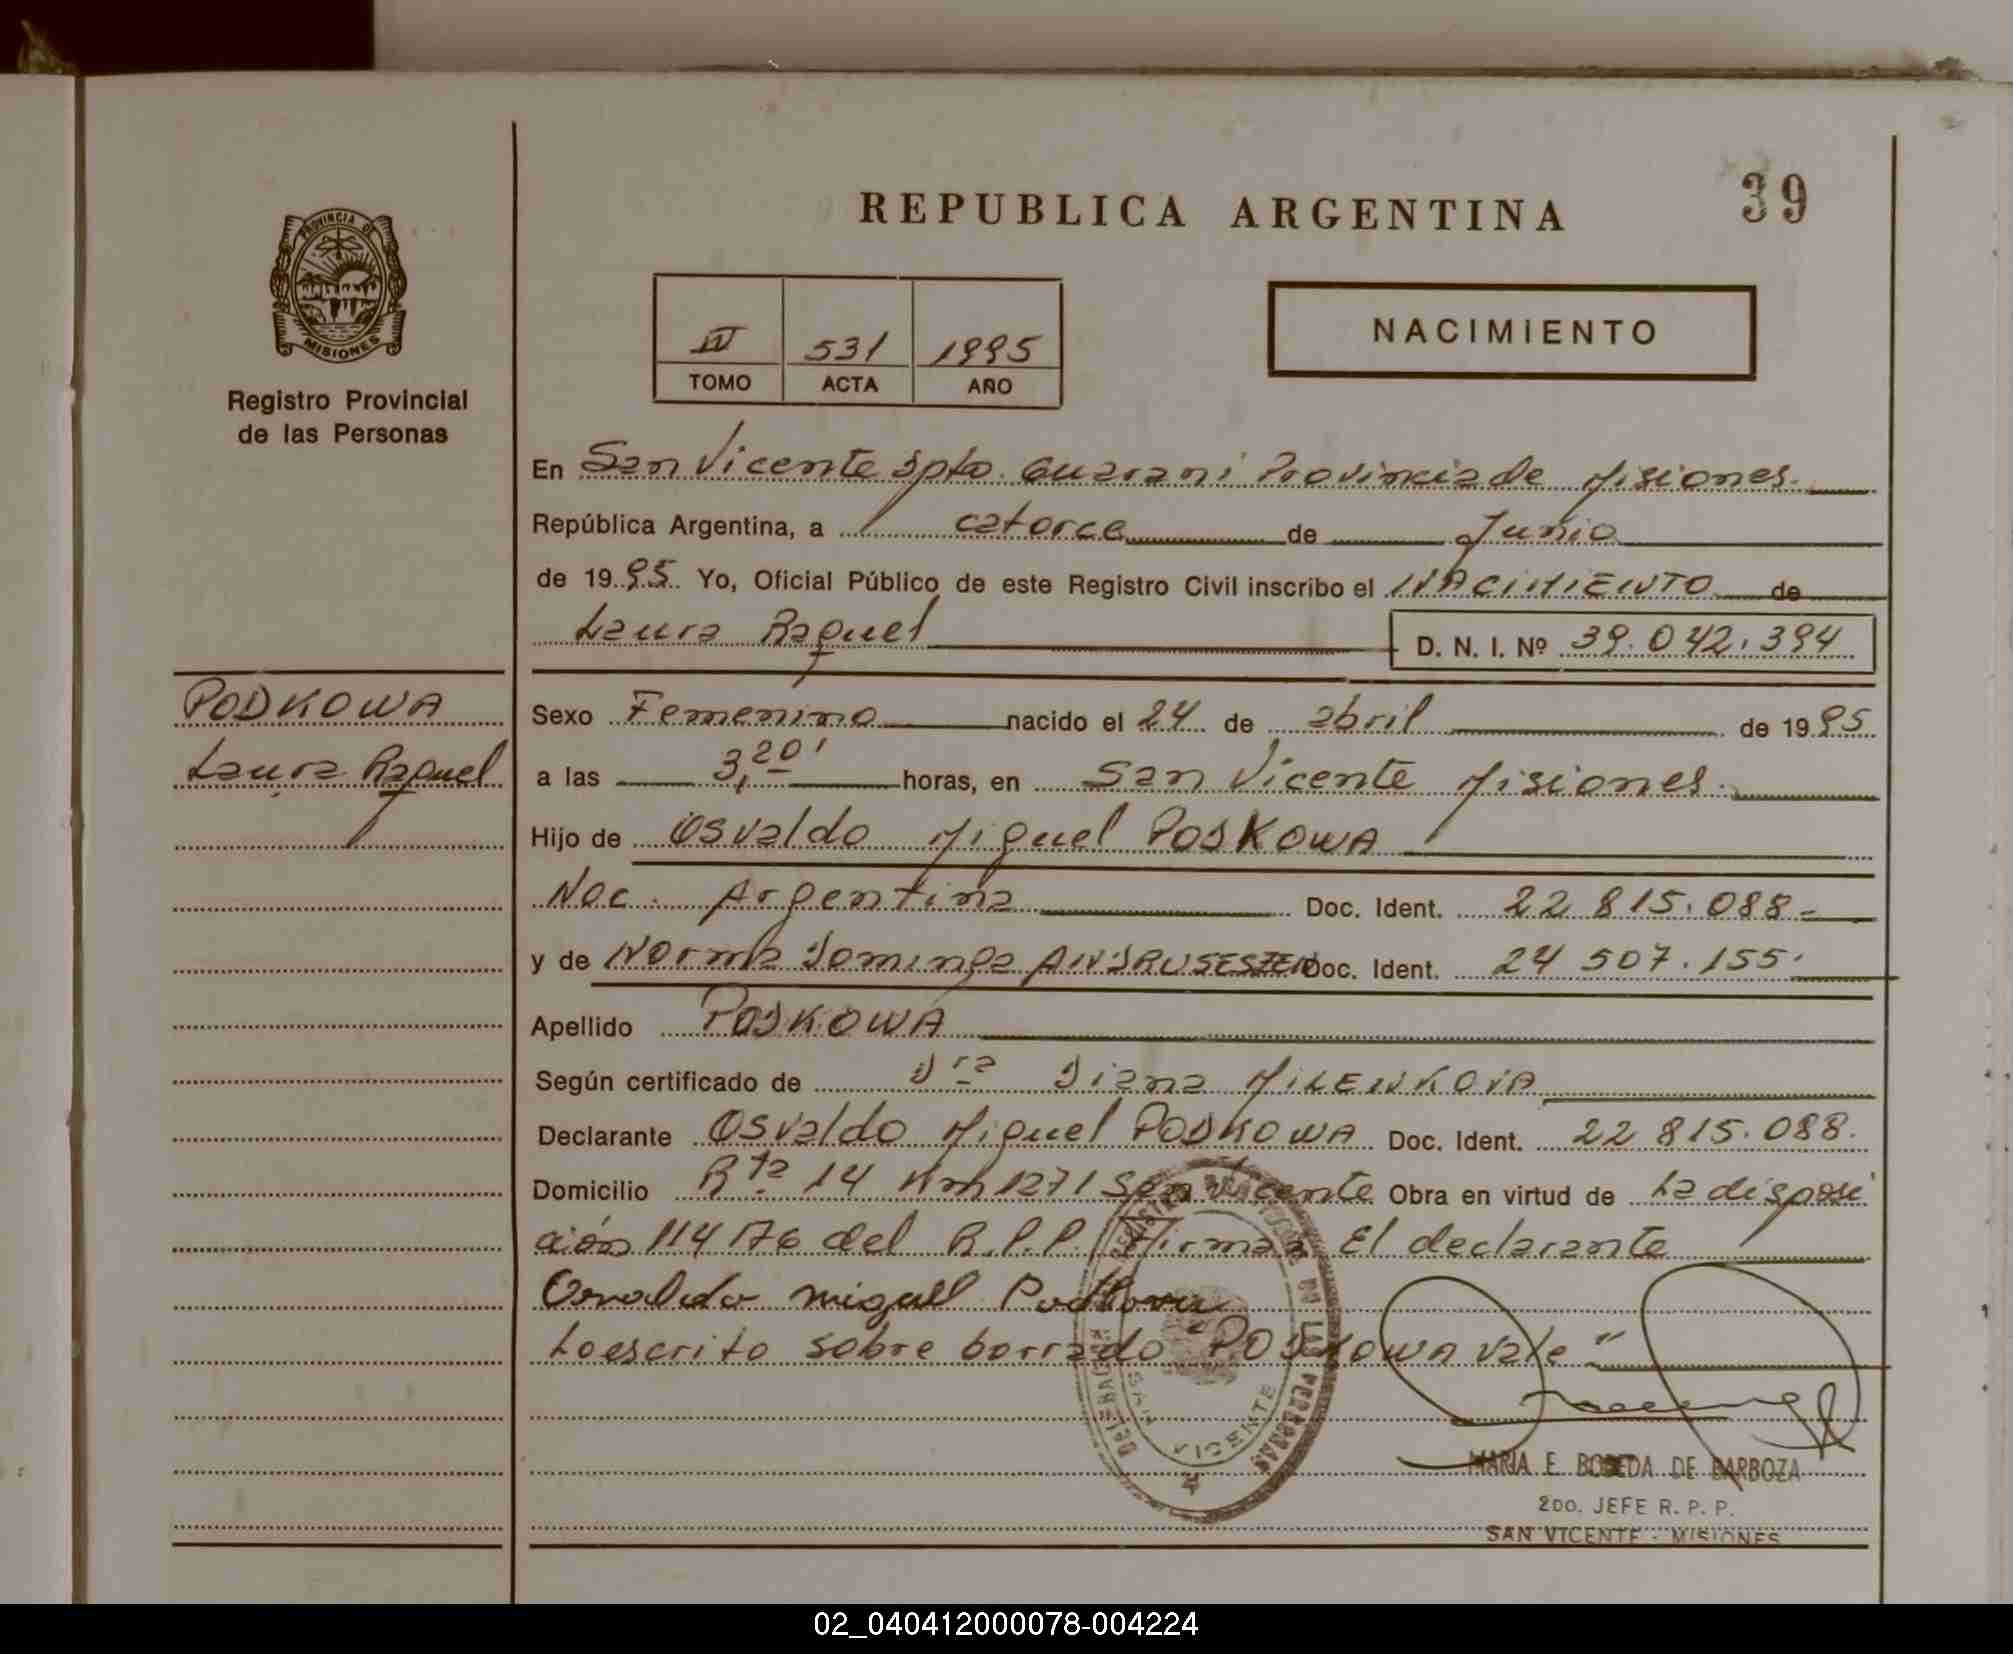 39
REPUBLICA ARGENTINA
PROVINCIA DE
MISIONES
Registro Provincial
de las Personas
IV 531 1995
TOMO ACTA AÑO
NACIMIENTO
En San Vicente Dpto. Guarani Provincia de Misiones.
República Argentina, a catorce de Junio
de 1995 Yo, Oficial Público de este Registro Civil inscribo el NACIMIENTO de
Laura Raquel D. N. I. Nº 39.042.394
PODKOWA
Laura Raquel
Sexo Femenino nacido el 24 de abril de 1995
a las 3,20' horas, en San Vicente Misiones.
Hijo de Osvaldo Miguel PODKOWA
Nac. Argentina Doc. Ident. 22 815.088-
y de Norma Dominga Doc. Ident. 24 507.155.
Apellido PODKOWA
Según certificado de Dra Diana MILENKOVA
Declarante Osvaldo Miguel PODKOWA Doc. Ident. 22 815.088.
Domicilio Rta 14 Km 1271 San Vicente Obra en virtud de La disposi
ción 114/76 del R.P.P. Firman El declarante
Osvaldo miguel Podkowa
Lo escrito sobre borrado "PODKOWA vale"
SAN VICENTE
MARIA E. DE BARBOZA
2DO. JEFE R. P. P.
SAN VICENTE - MISIONES
02_040412000078-004224